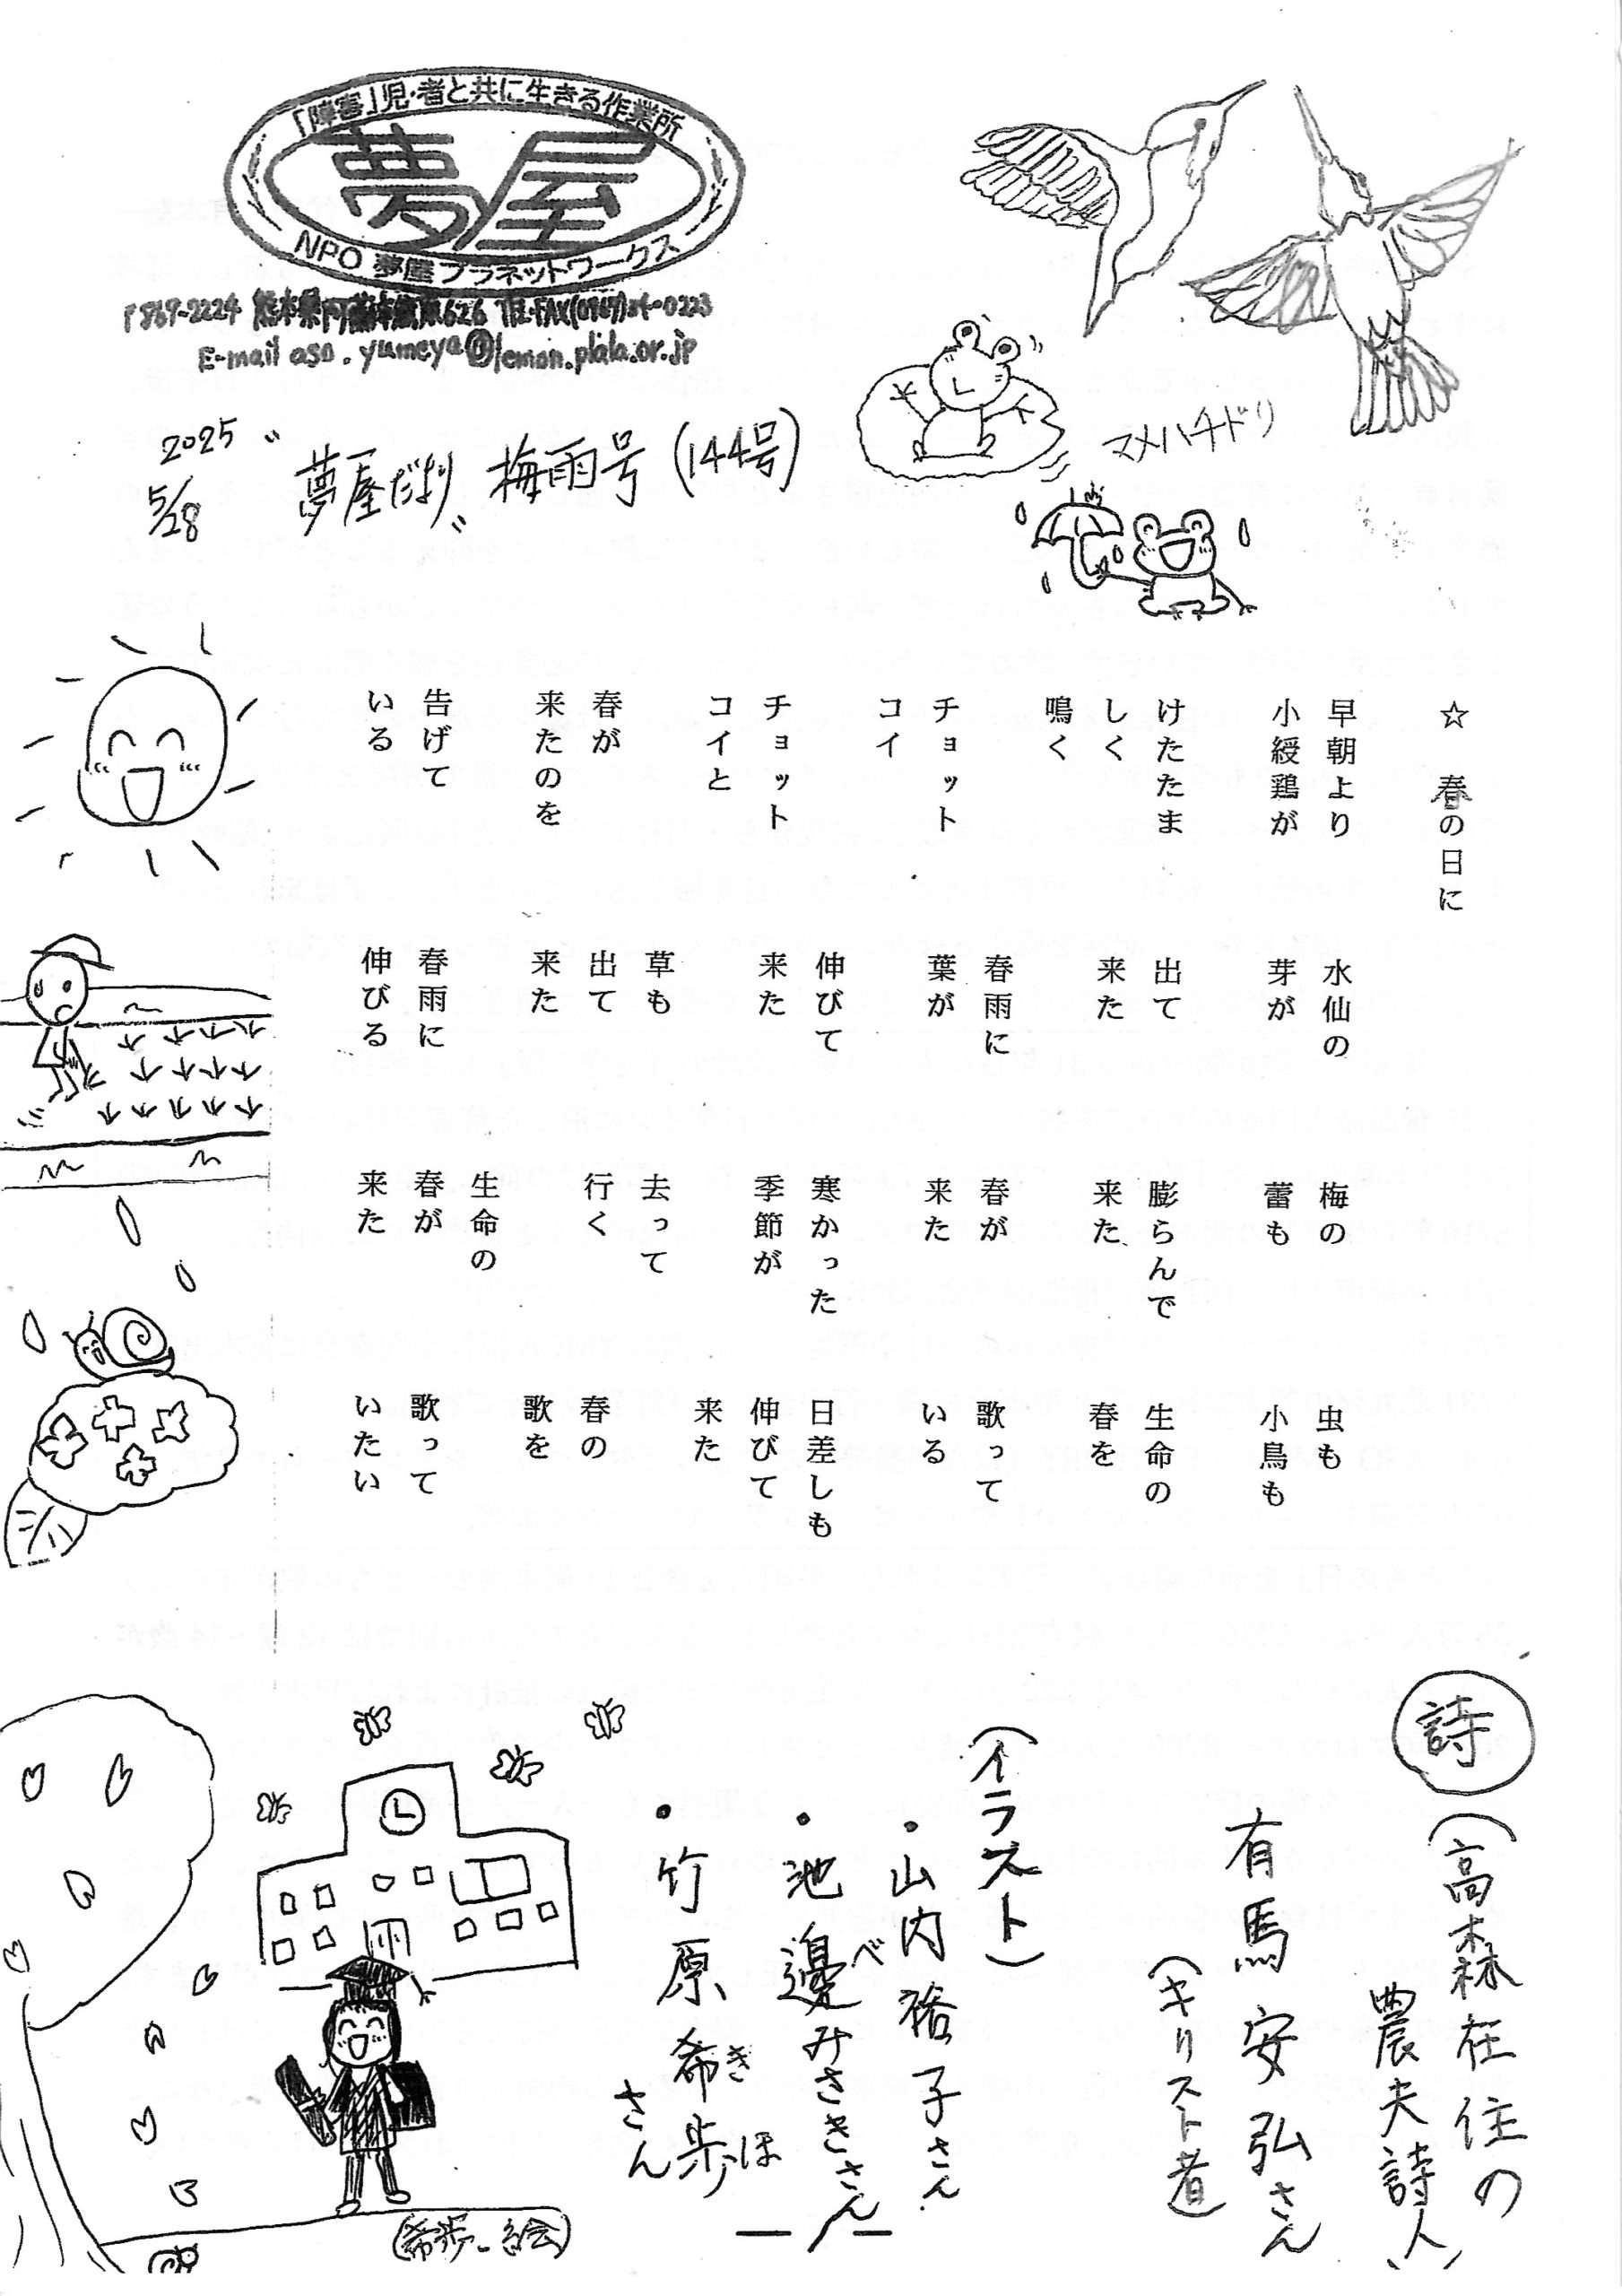 「障害」児・者と共に生きる作業所
夢屋
NPO 夢屋プラネットワークス
〒869-2224 熊本県阿蘇市 626 TEL・FAX(0967)34-0223
E-mail aso.yumeya@lemon.plala.or.jp
2025
5/28
"夢屋だより" 梅雨号(144号)
マメハチドリ
☆ 春の日に
早朝より
小綬鶏が
けたたま
しく
鳴く
チョット
コイ
チョット
コイと
春が
来たのを
告げて
いる
水仙の
芽が
出て
来た
春雨に
葉が
伸びて
来た
草も
出て
来た
春雨に
伸びる
梅の
蕾も
膨らんで
来た
春が
来た
寒かった
季節が
去って
行く
生命の
春が
来た
虫も
小鳥も
生命の
春を
歌って
いる
日差しも
伸びて
来た
春の
歌を
歌って
いたい
詩
(高森在住の
農夫詩人)
有馬安弘さん
(キリスト者)
(イラスト)
・山内裕子さん
・池邊べみさきさん
・竹原希歩きほさん
(希歩・絵)
— 1 —